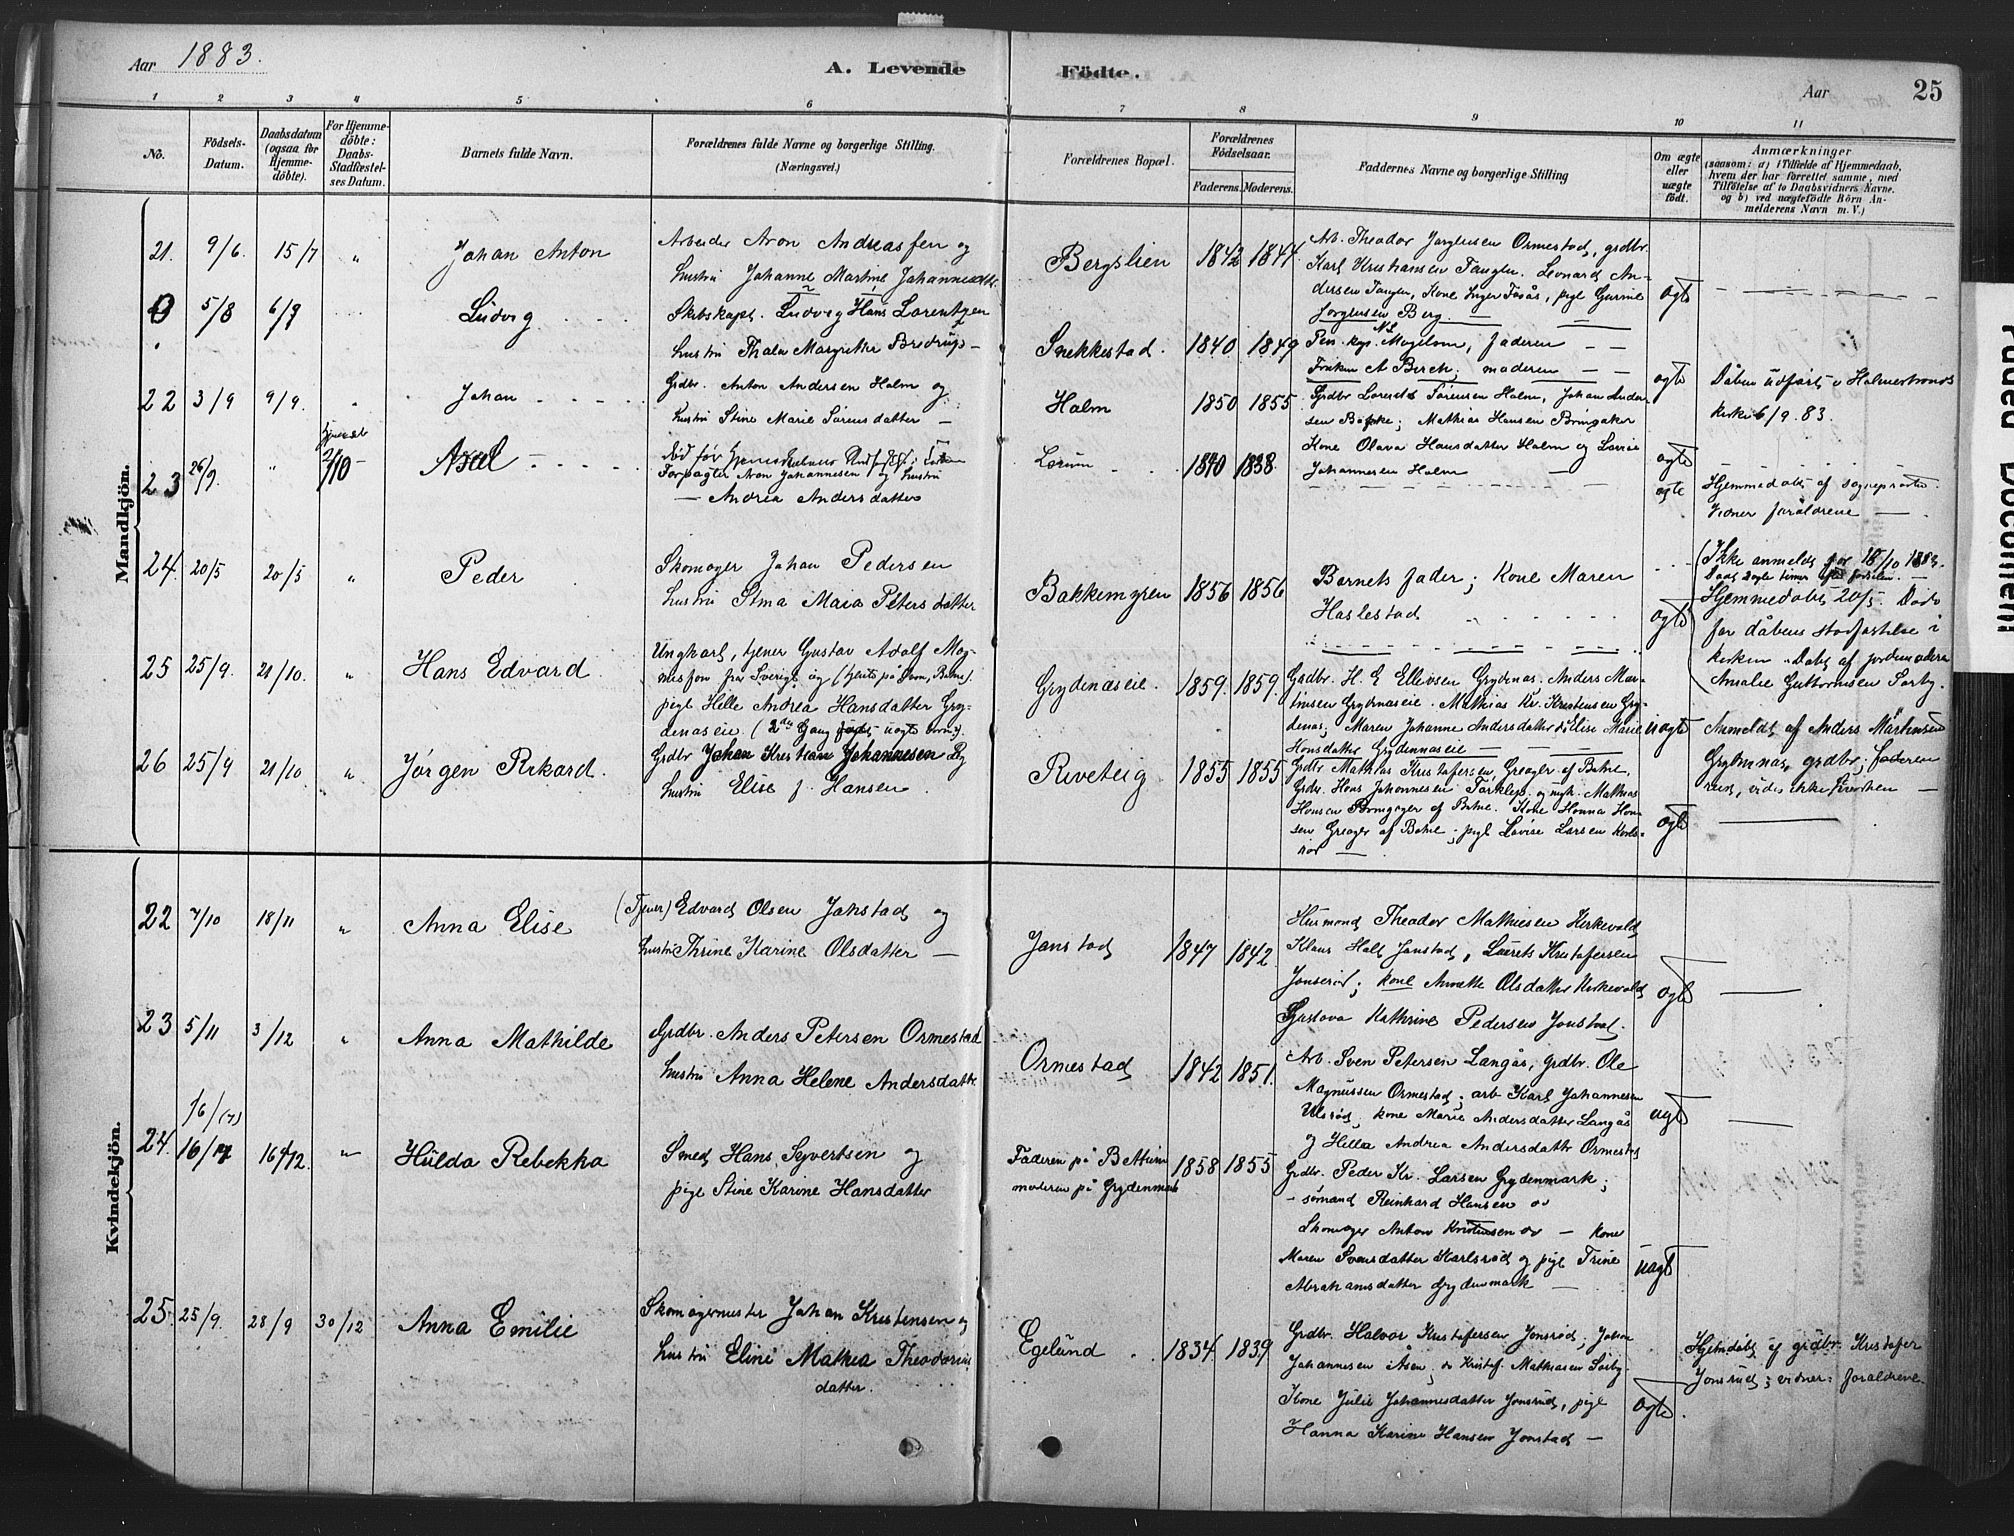 Aar 1883.
A. Levende Födte.
Aar 25
1 2 3 4 5 6 7 8 9 10 11
No.
Födsels-Datum.
Daabsdatum (ogsaa for Hjemme-døbte).
For Hjemme-döbte: Daabs-Stadfæstel-ses Datum.
Barnets fulde Navn.
Forældrenes fulde Navne og borgerlige Stilling. (Næringsvei.)
Forældrenes Bopæl.
Forældrenes Födselsaar.
Faderens. Moderens.
Faddernes Navne og borgerlige Stilling
Om ægte eller uægte födt.
Anmærkninger
(saasom: a) i Tilfælde af Hjemmedaab, hvem der har forrettet samme, med Tilföielse af to Daabsvidners Navne, og b) ved uægtefödte Börn Anmelderens Navn m. V.)
Mandkjön.
21. 9/6. 15/7 " Johan Anton
Arbeider Aron Andreassen og
hustru Johanne Martine Johannesdtr.
Bergslien 1842 1844
Arb. Theodor Jørgensen Ormestad, grdbr.
Karl Kristiansen Tangen. Leonard An-
dersen Tangen, Kone Inger Fosås, pige Gurine
Jørgensen Berg.
ægte
5/8 6/9 Ludvig
Skibskapt. Ludvig Hans Lorentzen
hustru Thala Margrethe Bredrup
Snekkestad. 1840 1849
Faderen
Frøken A Birch, moderen
ægte
Dåben udført i Holmestrands
kirke 6/9. 83.
22 3/9 9/9. Johan
Grdbr. Anton Andersen Holm og
hustru Stine Marie Sørensdatter
Holm 1850 1855
Grdbr Lorents Sørensen Holm, Johan Ander-
sen Bakke; Mathias Hansen Bringaker
Kone Olava Hansdatter Holm og Lovise
Johannesen Holm
ægte
23 26/9. " 2/10 Axel
Forpagter Aron Johannesen og hustru
Andrea Andersdatter
Lerum 1840 1838.
ægte
Hjemmedøbt af sognepræsten.
Vidner forældrene
24. 20/5 20/5 " Peder
Skomager Johan Pedersen
hustru Stina Maia Petersdatter
Bakkemyren 1856 1856
Barnets fader; Kone Maren
Haslestad
ægte
(Ikke anmeldt før 18/10 1883.
Hjemmedøbt 20/5. Døde
før dåbens stadfæstelse i
kirken. Døbt af jordemoderen
Amalie Guttormsen Sørby.
25 25/9. 21/10. " Hans Edvard
Ungkarl, tjener Gustav Adolf Mag-
nussøn fra Sverige og (tjente på Botne).
pige Helle Andrea Hansdatter Gry-
denæseie. (2den Gang uægte barn).
Grydenæseie. 1859. 1859.
Grdbr. H. E. Ellevsen Grydenæs. Anders Mar-
tinsen Grydenæseie. Mathias Kr. Kristensen Gry-
denæs; Maren Johanne Andersdatter, Elise Marie
Hansdatter Grydennæseie
uægte
Anmeldt af Anders Martinsen
Grydenæs, grdbr; faderen
26 25/9 21/10 " Jørgen Rikard.
Grdbr Johan Kristian Johannesen og
hustru Elise f. Hansen.
Riveteig 1855 1855
Grdbr Mathias Kristofersen, Greager af Botne,
Grdbr. Hans Johannesen og Mathias
Hansen Bringager af Botne. Kone Hanna Han-
sen Greager af Botne, pige Lovise Larsen
ægte
Kvindekjön.
22 7/10 18/11 " Anna Elise
(Tjener) Edvard Olsen Jonstad og
hustru Thrine Karine Olsdatter
Jonstad 1847 1842
Husmand Theodor Mathiesen Kirkevold
Klaus Hals Jonstad, Laurits Kristofersen
Jonserød; kone Annette Olsdatter Kirkevold
Gustava Kathrine Pedersen Jonstad.
ægte
23 5/11 3/12 " Anna Mathilde
Grdbr. Anders Petersen Ormestad
hustru Anna Helene Andersdatter
Ormestad 1842 1851.
Arb. Sven Petersen Langås, grdbr. Ole
Magnussen Ormestad, arb Karl Johannesen
Ulsrød, kone Marie Andersdatter Langås
og Hella Andrea Andersdatter Ormestad
ægte
16/(7)
24. 16/ 16/12. " Hulda Rebekka
Smed Hans Syvertsen og
pige Stine Karine Hansdatter
Faderen på Bettum
moderen på Grydenmark 1858 1855
Grdbr. Peder Kr. Larsen Grydenmark;
sømand Reinhard Hansen
Skomager Anton Kristensen — kone
Maren Svensdatter Karlsrød og pige Trine
Abrahamsdatter Grydenmark
uægte
25. 25/9. 28/9 30/12 Anna Emilie
Skomagermester Johan Kristensen og
hustru Eline Mathea Theodorius
datter.
Egelund 1834. 1839
Grdbr. Halvor Kristofersen Jonsrød; Johan
Johannesen Åsen, Kristof. Mathiasen Sørby
Kone Julie Johannesdatter Jonsrud, pige
Hanna Karine Hansen Jonstad
ægte.
Hjemdøbt af grdbr. Kristofer
Jonsrud; vidner: forældrene.